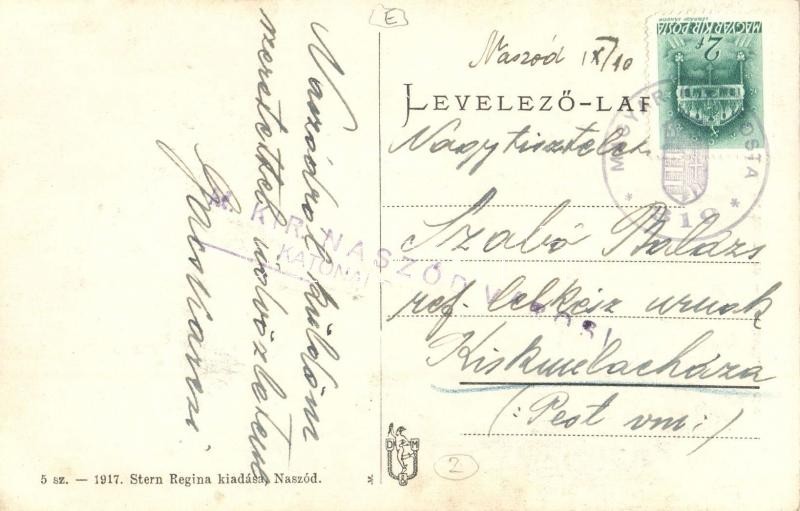 E
Naszód IX/10
LEVELEZŐ-LAP
MAGYAR KIR. POSTA
2f
MAGYAR KIR. POSTA
* 319 *
Nagytisztelet
Szabó Balázs
ref. lelkész urnak
Kiskunlacháza
(: Pest vm :)
Naszódról küldöm
szeretettel üdvözletem
M. KIR. NASZÓD VÁROSI
KATONAI
D M
2
5 sz. — 1917. Stern Regina kiadása, Naszód.